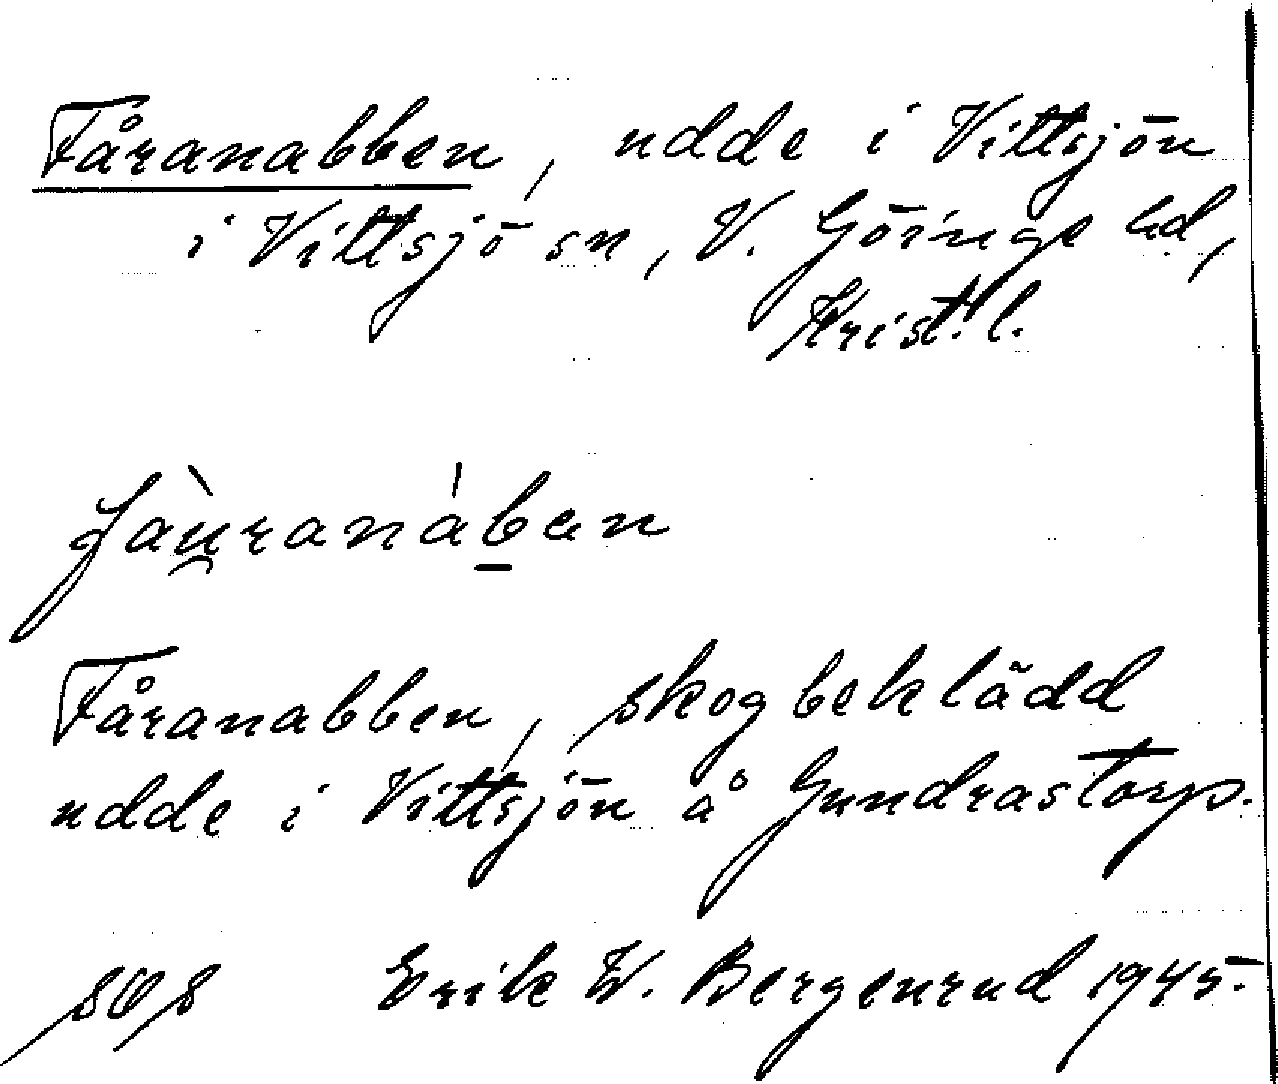 Fåranabben, udde i Vittsjön
i Vittsjö sn, V. Göinge hd,
Krist. l.
fàu̯ranáb̲en
Fåranabben, skogbeklädd
udde i Vittsjön å Gundrastorp.
Erik W. Bergenrud 1945.